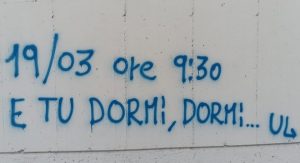 19/03 ore 9:30
E TU DORMi, DORMi... UL